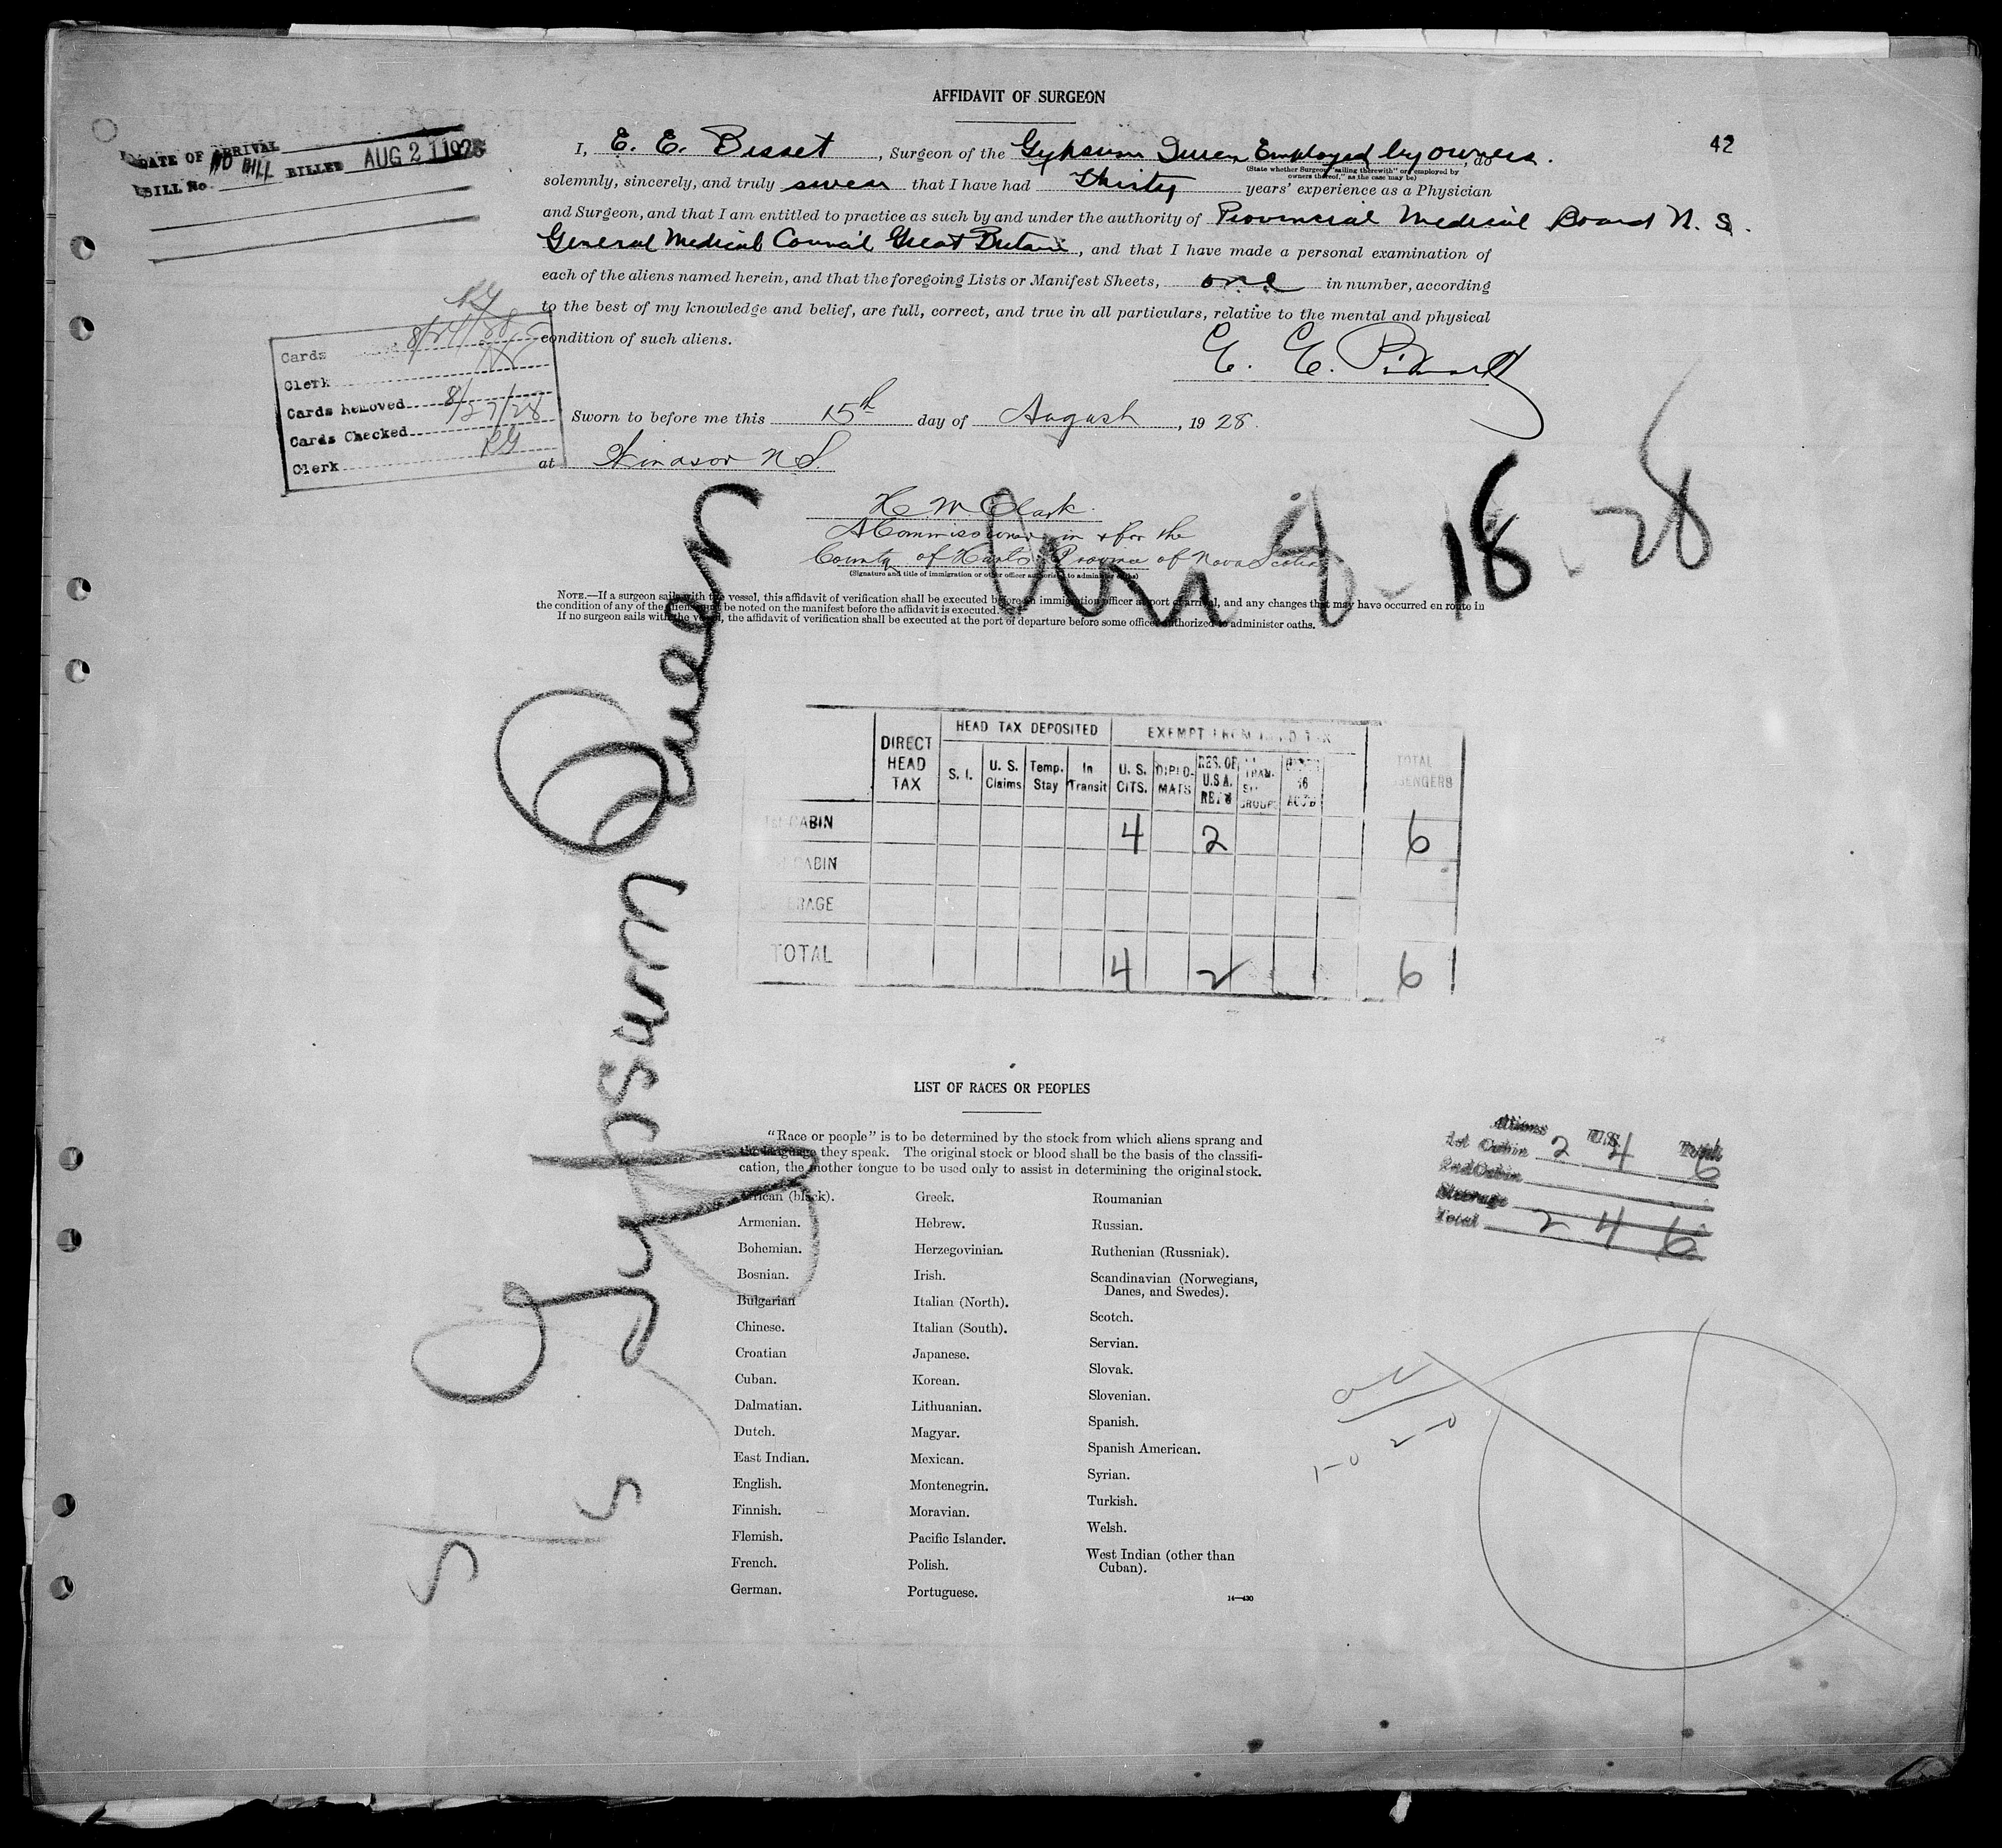 AFFIDAVIT OF SURGEON
42
DATE OF ARRIVAL
BILL No. NO BILL BILLED AUG 21 1928
I, E. E. Bisset, Surgeon of the Gypsum Queen Employed by owners., do
(State whether Surgeon "sailing therewith" or "employed by
owners thereof," as the case may be)
solemnly, sincerely, and truly swear that I have had Thirty years' experience as a Physician
and Surgeon, and that I am entitled to practice as such by and under the authority of Provincial Medical Board N. S.
General Medical Council Great Britain, and that I have made a personal examination of
each of the aliens named herein, and that the foregoing Lists or Manifest Sheets, one in number, according
to the best of my knowledge and belief, are full, correct, and true in all particulars, relative to the mental and physical
condition of such aliens.
E. E.
RG
Cards 8/24/28
Clerk
Cards Removed 8/27/28
Cards Checked
Clerk RG
Sworn to before me this 15th day of August, 1928.
at Windsor N S.
H. M. Clark.
A Commissioner in & for the
County of Hants Province of Nova Scotia
(Signature and title of immigration or other officer authorized to administer oaths)
Arr 8-18-28
NOTE.—If a surgeon sails with the vessel, this affidavit of verification shall be executed before an immigration officer at port of arrival, and any changes that may have occurred en route in
the condition of any of the aliens must be noted on the manifest before the affidavit is executed.
If no surgeon sails with the vessel, the affidavit of verification shall be executed at the port of departure before some officer authorized to administer oaths.
S/S Gypsum Queen
DIRECT HEAD TAX
HEAD TAX DEPOSITED
EXEMPT FROM HEAD TAX
TOTAL PASSENGERS
S. I.
U. S. Claims
Temp. Stay
In Transit
U. S. CITS.
DIPLO-MATS
RES. OF U.S.A. RET'G
1st CABIN 4 2 6
CABIN
STEERAGE
TOTAL 4 2 6
LIST OF RACES OR PEOPLES
"Race or people" is to be determined by the stock from which aliens sprang and
the language they speak. The original stock or blood shall be the basis of the classifi-
cation, the mother tongue to be used only to assist in determining the original stock.
African (black).
Armenian.
Bohemian.
Bosnian.
Bulgarian
Chinese.
Croatian
Cuban.
Dalmatian.
Dutch.
East Indian.
English.
Finnish.
Flemish.
French.
German.
Greek.
Hebrew.
Herzegovinian.
Irish.
Italian (North).
Italian (South).
Japanese.
Korean.
Lithuanian.
Magyar.
Mexican.
Montenegrin.
Moravian.
Pacific Islander.
Polish.
Portuguese.
Roumanian
Russian.
Ruthenian (Russniak).
Scandinavian (Norwegians,
Danes, and Swedes).
Scotch.
Servian.
Slovak.
Slovenian.
Spanish.
Spanish American.
Syrian.
Turkish.
Welsh.
West Indian (other than
Cuban).
14—430
Aliens U.S. Total
1st Cabin 2 4 6
2nd Cabin
Steerage
Total 2 4 6